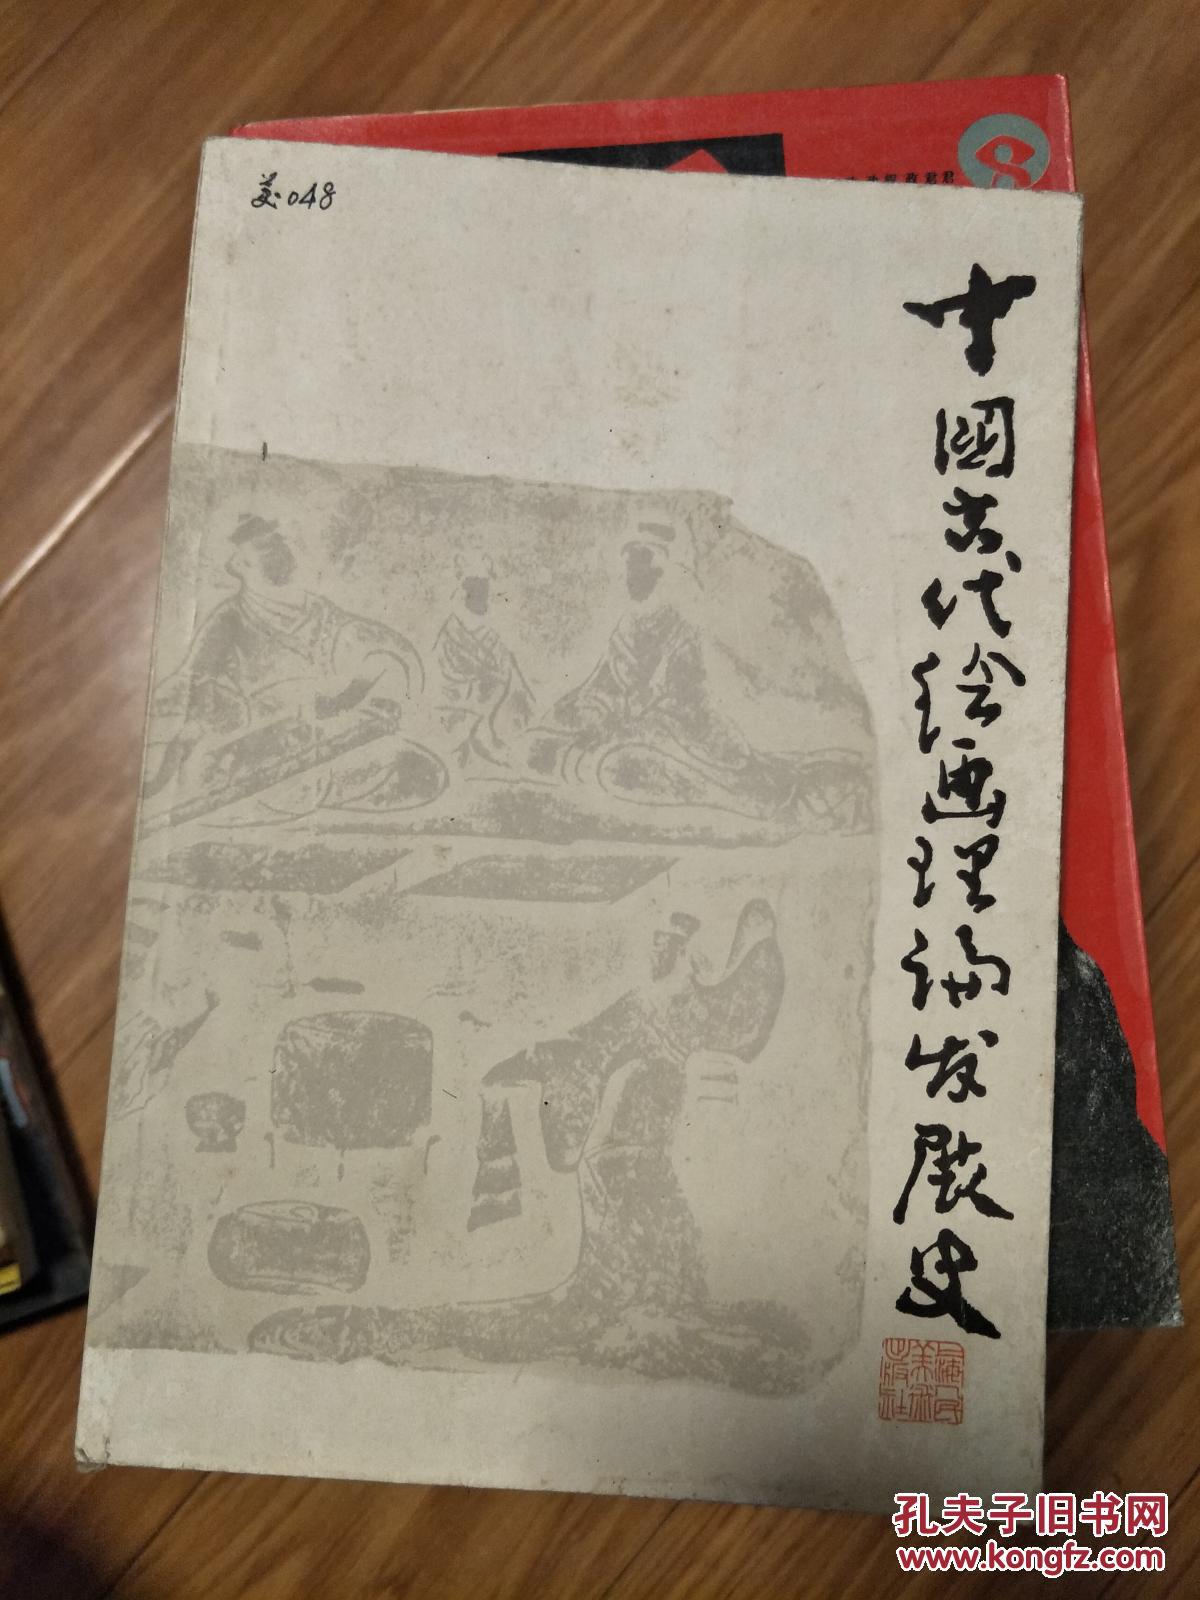 美048
中國古代绘画理论发展史
上海人民美术出版社
政君君
8
孔夫子旧书网
www.kongfz.com